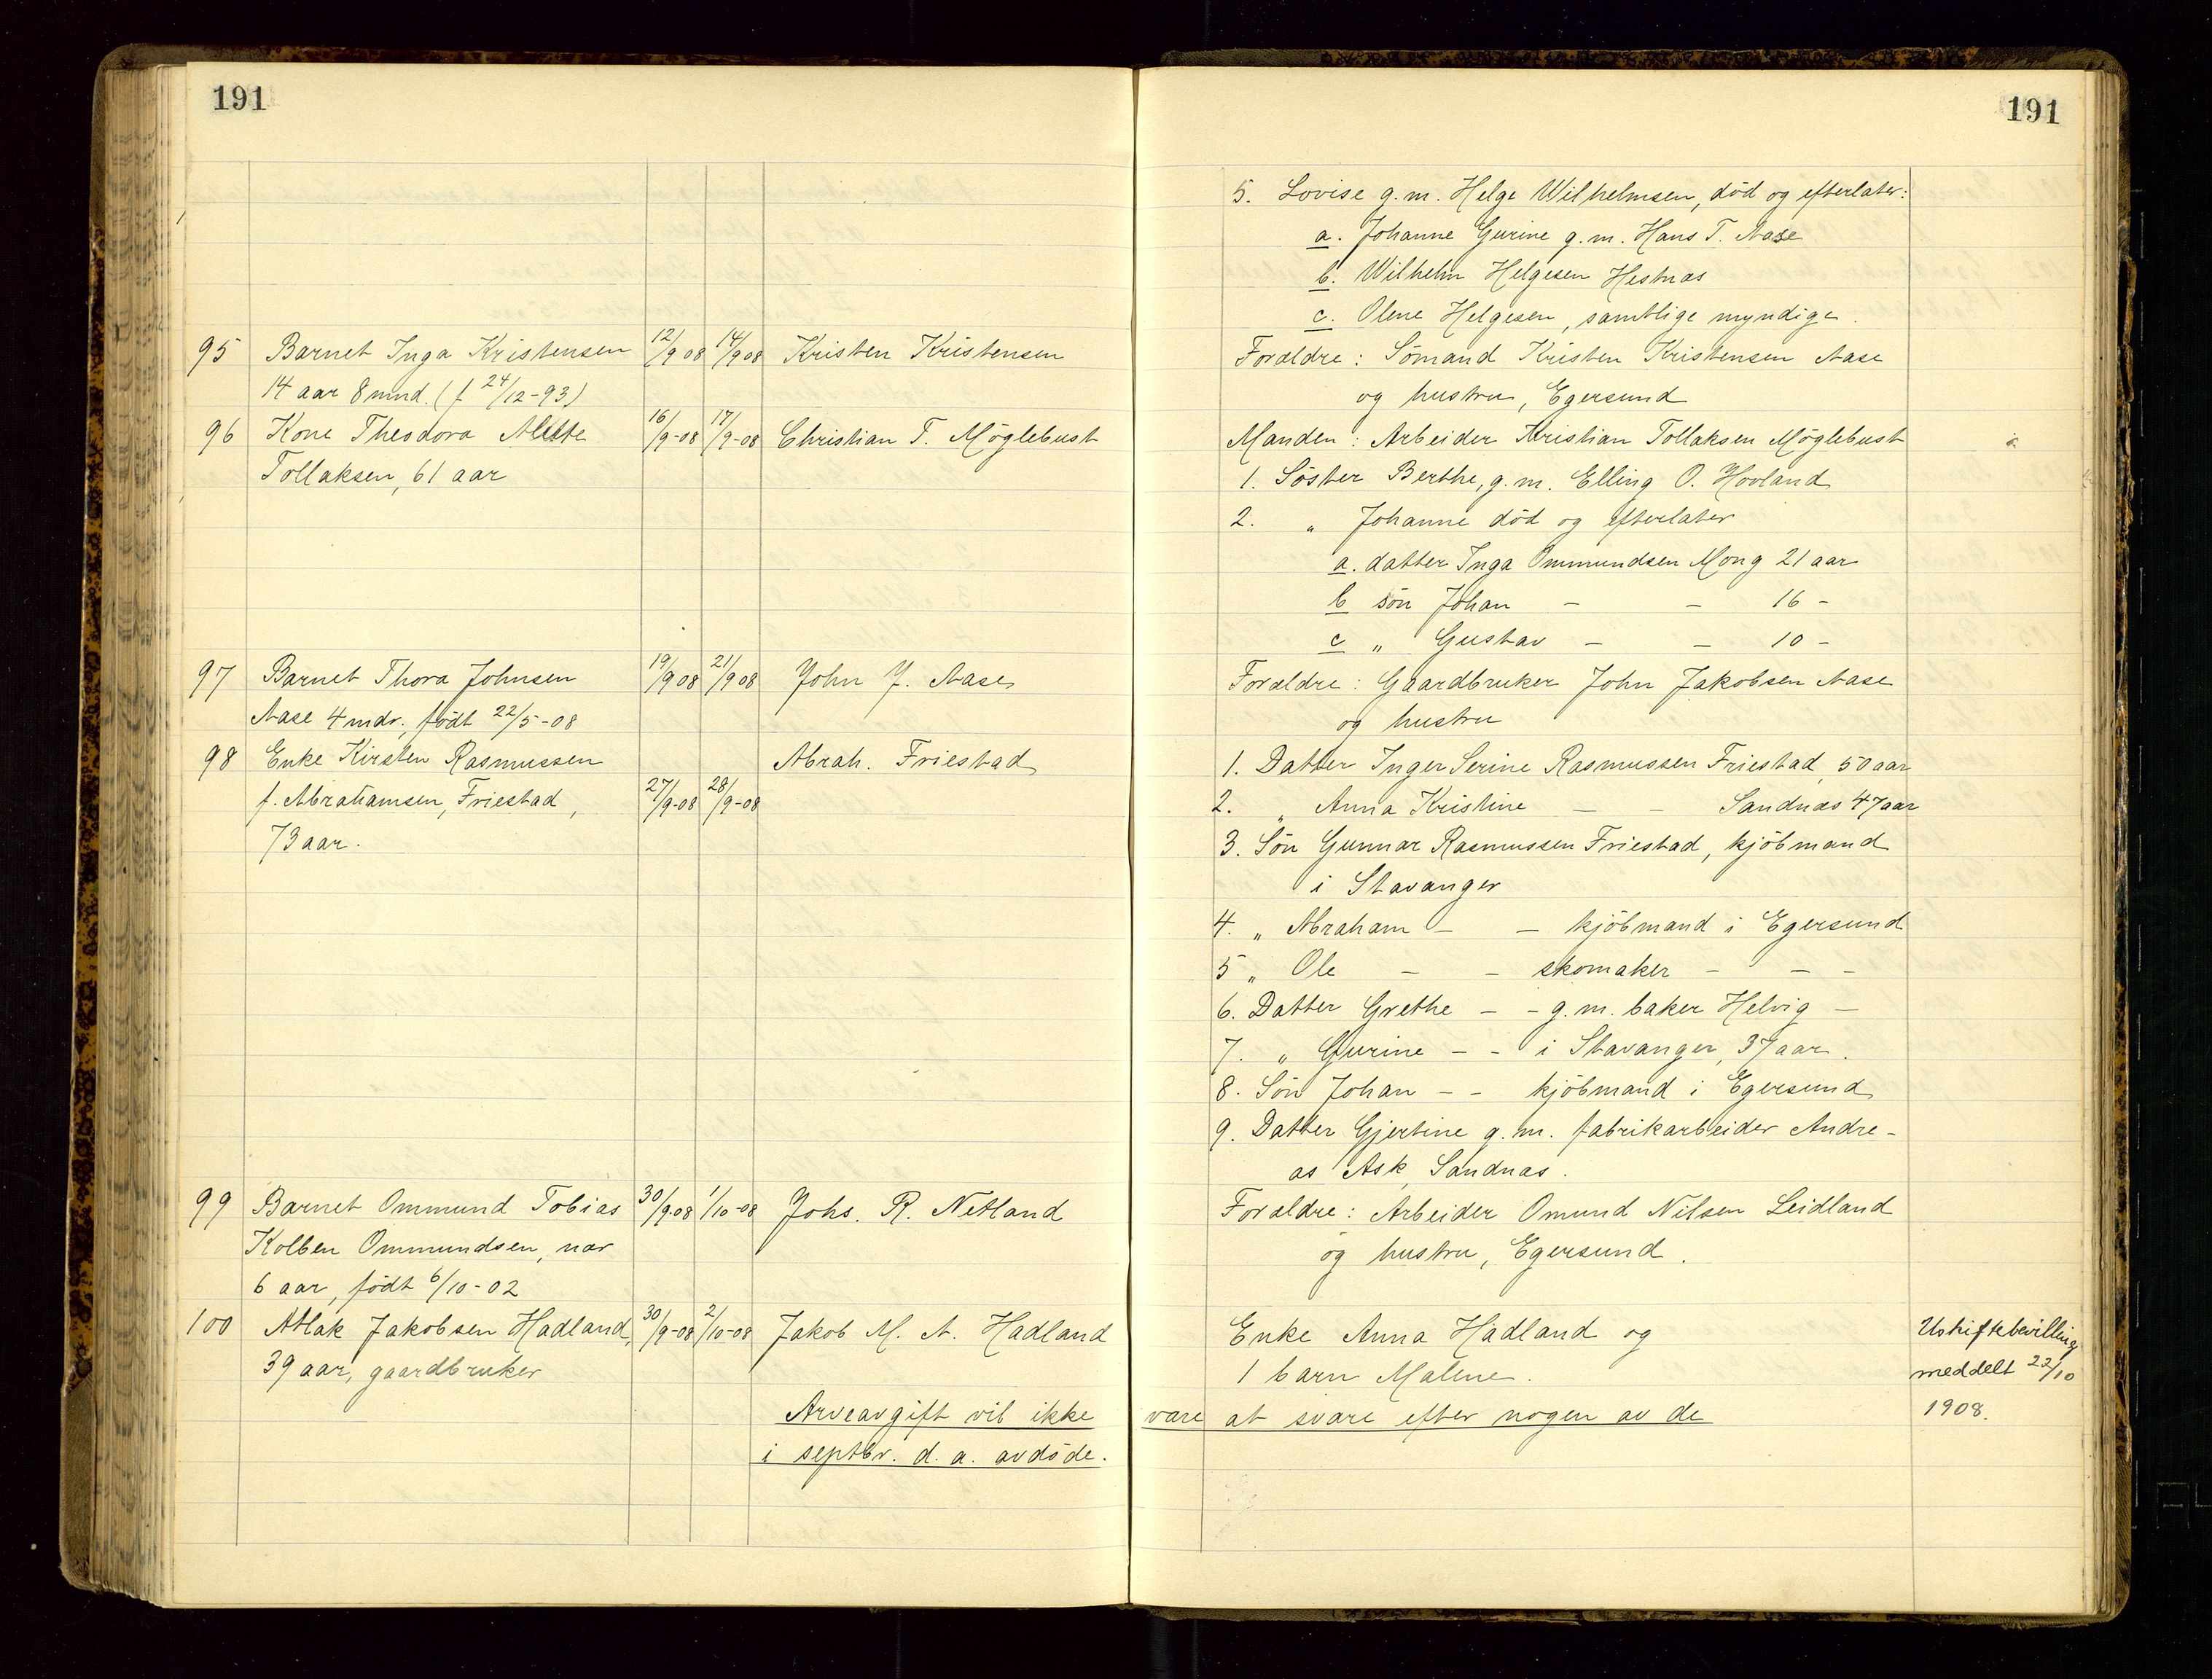 191
95 Barnet Inga Kristensen 12/9 08 14/9 08 Kristen Kristensen
14 aar 8 mnd. (f 24/12-93)
96 Kone Theodora Alette 16/9-08 17/9-08 Christian T. Möglebust
Tollaksen, 61 aar
97 Barnet Thora Johnsen 19/9 08 21/9 08 John J. Aase
Aase 4 mdr., födt 22/5-08
98 Enke Kirsten Rasmussen Abrah. Friestad
f. Abrahamsen, Friestad, 27/9-08 28/9-08
73 aar.
99 Barnet Ommund Tobias 30/9-08 1/10-08 Johs. R. Netland
Kolben Ommundsen, nær
6 aar, födt 6/10-02
100 Atlak Jakobsen Hadland, 30/9-08 2/10-08 Jakob M. A. Hadland
39 aar, gaardbruker
Arveavgift vil ikke
i septbr. d. a. avdöde.
191
5. Lovise g.m. Helge Wilhelmsen, död og efterlater:
a. Johanne Gurine g.m. Hans T. Aase
b. Wilhelm Helgesen Hestnæs
c. Olene Helgesen, samtlige myndige.
Forældre: Sömand Kristen Kristensen Aase
og hustru, Egersund
Manden: Arbeider Kristian Tollaksen Möglebust
1. Söster Berthe, g.m. Elling O. Hovland
2. " Johanne död og efterlater
a. datter Inga Ommundsen Mong 21 aar
b sön Johan - - 16 -
c " Gustav - - 10 -
Forældre: Gaardbruker John Jakobsen Aase
og hustru
1. Datter Inger Serine Rasmussen Friestad, 50 aar
2. " Anna Kristine - - Sandnæs 47 aar
3. Sön Gunnar Rasmussen Friestad, kjöbmand
i Stavanger
4. " Abraham - - kjöbmand i Egersund
5 " Ole - - skomaker - - -
6. Datter Grethe - - g.m. baker Helvig -
7. " Gurine - - i Stavanger, 37 aar.
8. Sön Johan - - kjöbmand i Egersund
9. Datter Gjertine g.m. fabrikarbeider Andre-
as Ask, Sandnæs.
Forældre: Arbeider Omund Nilsen Leidland
og hustru, Egersund.
Enke Anna Hadland og
1 barn Malene.
være at svare efter nogen av de
Uskiftebevilling
meddelt 22/10
1908.